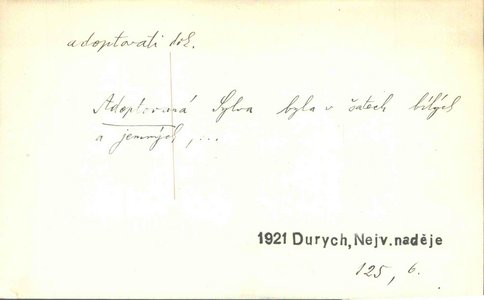 adoptovati dok.
Adoptovaná Sylva byla v šatech bílých
a jemných, ...
1921 Durych, Nejv. naděje
125, 6.